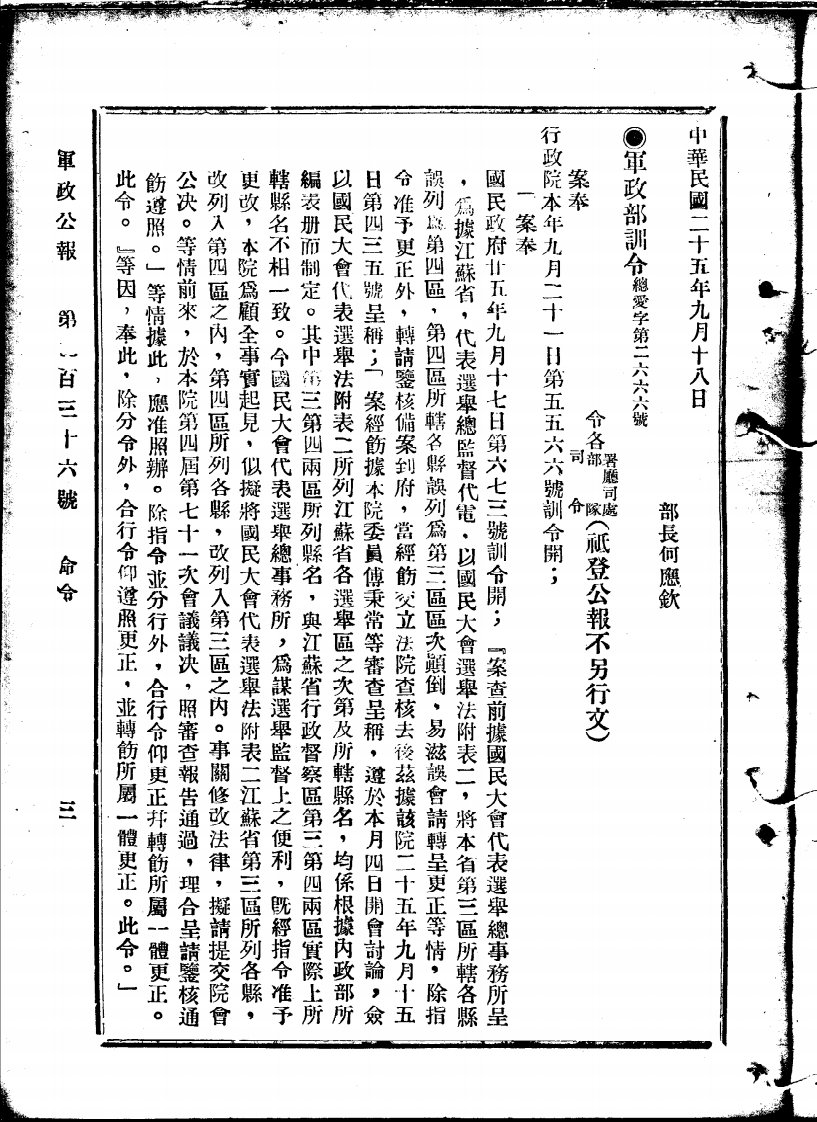 中華民國二十五年九月十八日
部長何應欽
●軍政部訓令總愛字第二六六六號
令各署廳司處部隊司令(祇登公報不另行文)
案奉
行政院本年九月二十一日第五五六六號訓令開；
「案奉
國民政府廿五年九月十七日第六七三號訓令開；『案查前據國民大會代表選舉總事務所呈
，爲據江蘇省，代表選舉總監督代電，以國民大會選舉法附表二，將本省第三區所轄各縣
誤列爲第四區，第四區所轄各縣誤列爲第三區區次顛倒，易滋誤會請轉呈更正等情，除指
令准予更正外，轉請鑒核備案到府，當經飭交立法院查核去後茲據該院二十五年九月十五
日第四三五號呈稱；「案經飭據本院委員傅秉常等審查呈稱，遵於本月四日開會討論，僉
以國民大會代表選舉法附表二所列江蘇省各選舉區之次第及所轄縣名，均係根據內政部所
編表册而制定。其中第三第四兩區所列縣名，與江蘇省行政督察區第三第四兩區實際上所
轄縣名不相一致。今國民大會代表選舉總事務所，爲謀選舉監督上之便利，旣經指令准予
更改，本院爲顧全事實起見，似擬將國民大會代表選舉法附表二江蘇省第三區所列各縣，
改列入第四區之內，第四區所列各縣，改列入第三區之內。事關修改法律，擬請提交院會
公決。等情前來，於本院第四屆第七十一次會議議決，照審查報告通過，理合呈請鑒核通
飭遵照。」等情據此，應准照辦。除指令並分行外，合行令仰更正幷轉飭所屬一體更正。
此令。』等因，奉此，除分令外，合行令仰遵照更正，並轉飭所屬一體更正。此令。」
軍政公報　第　百三十六號　命令　三